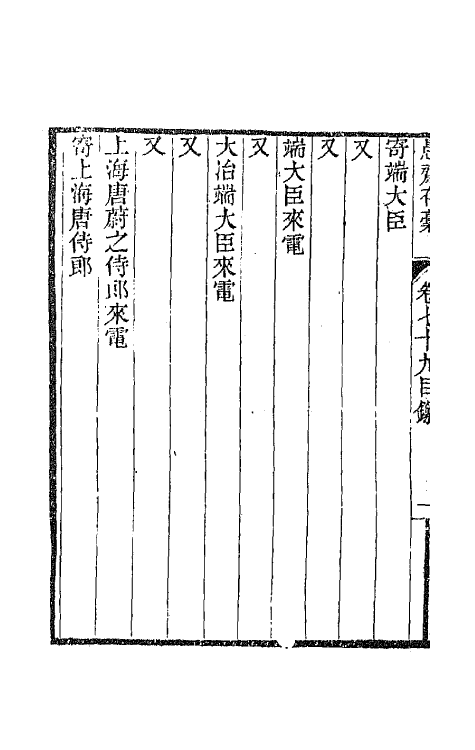 愚齋存稾 卷七十九目錄
寄端大臣
又
又
端大臣來電
又
大冶端大臣來電
又
又
上海唐蔚之侍郎來電
寄上海唐侍郎